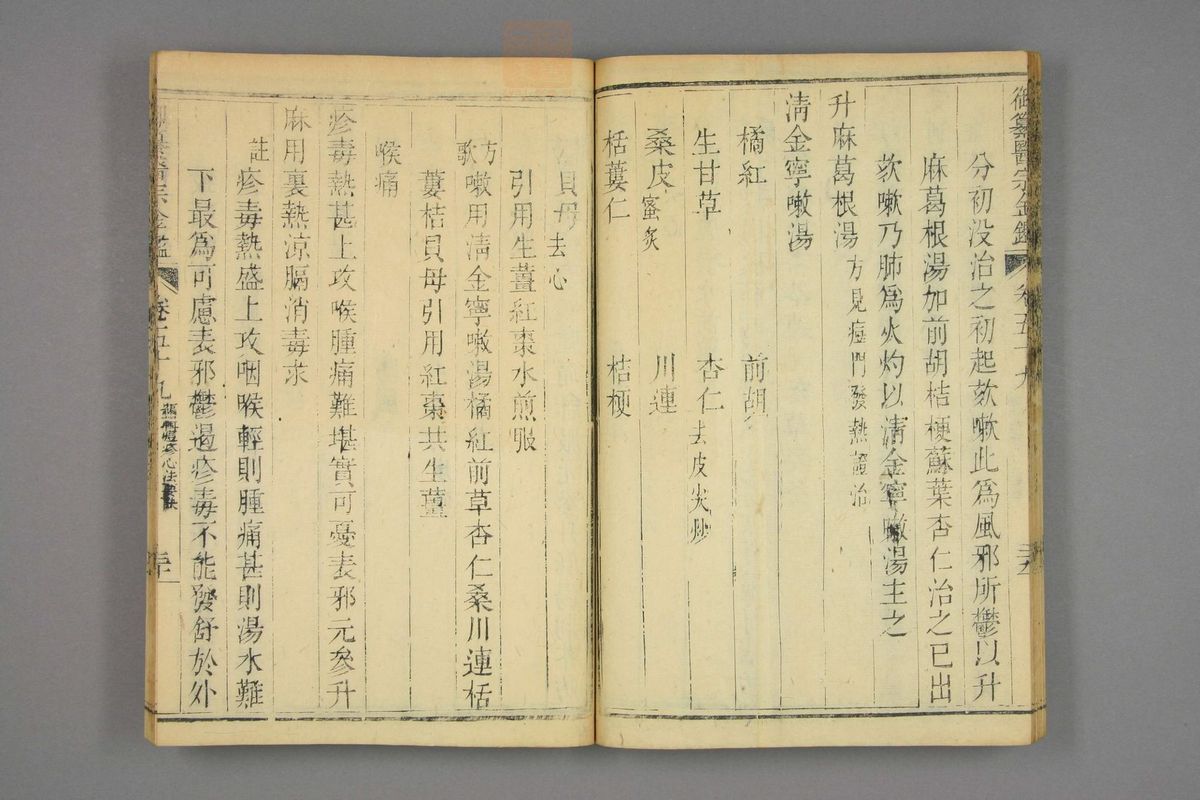 御纂醫宗金鑑 卷五十九
分初没治之初起欬嗽此為風邪所鬱以升
麻葛根湯加前胡桔梗蘇葉杏仁治之已出
欬嗽乃肺為火灼以清金寧嗽湯主之
升麻葛根湯 方見痘門發熱證治
清金寧嗽湯
橘紅 前胡
生甘草 杏仁 去皮尖炒
桑皮 蜜炙 川連
栝蔞仁 桔梗
貝母 去心
引用生薑紅棗水煎服
方歌 嗽用清金寧嗽湯橘紅前草杏仁桑川連栝
蔞桔貝母引用紅棗共生薑
喉痛
疹毒熱甚上攻喉腫痛難堪實可憂表邪元參升
麻用裏熱涼膈消毒求
註 疹毒熱盛上攻咽喉輕則腫痛甚則湯水難
下最為可慮表邪鬱遏疹毒不能發舒於外
醫宗金鑑 卷五十九 痘疹心法要訣